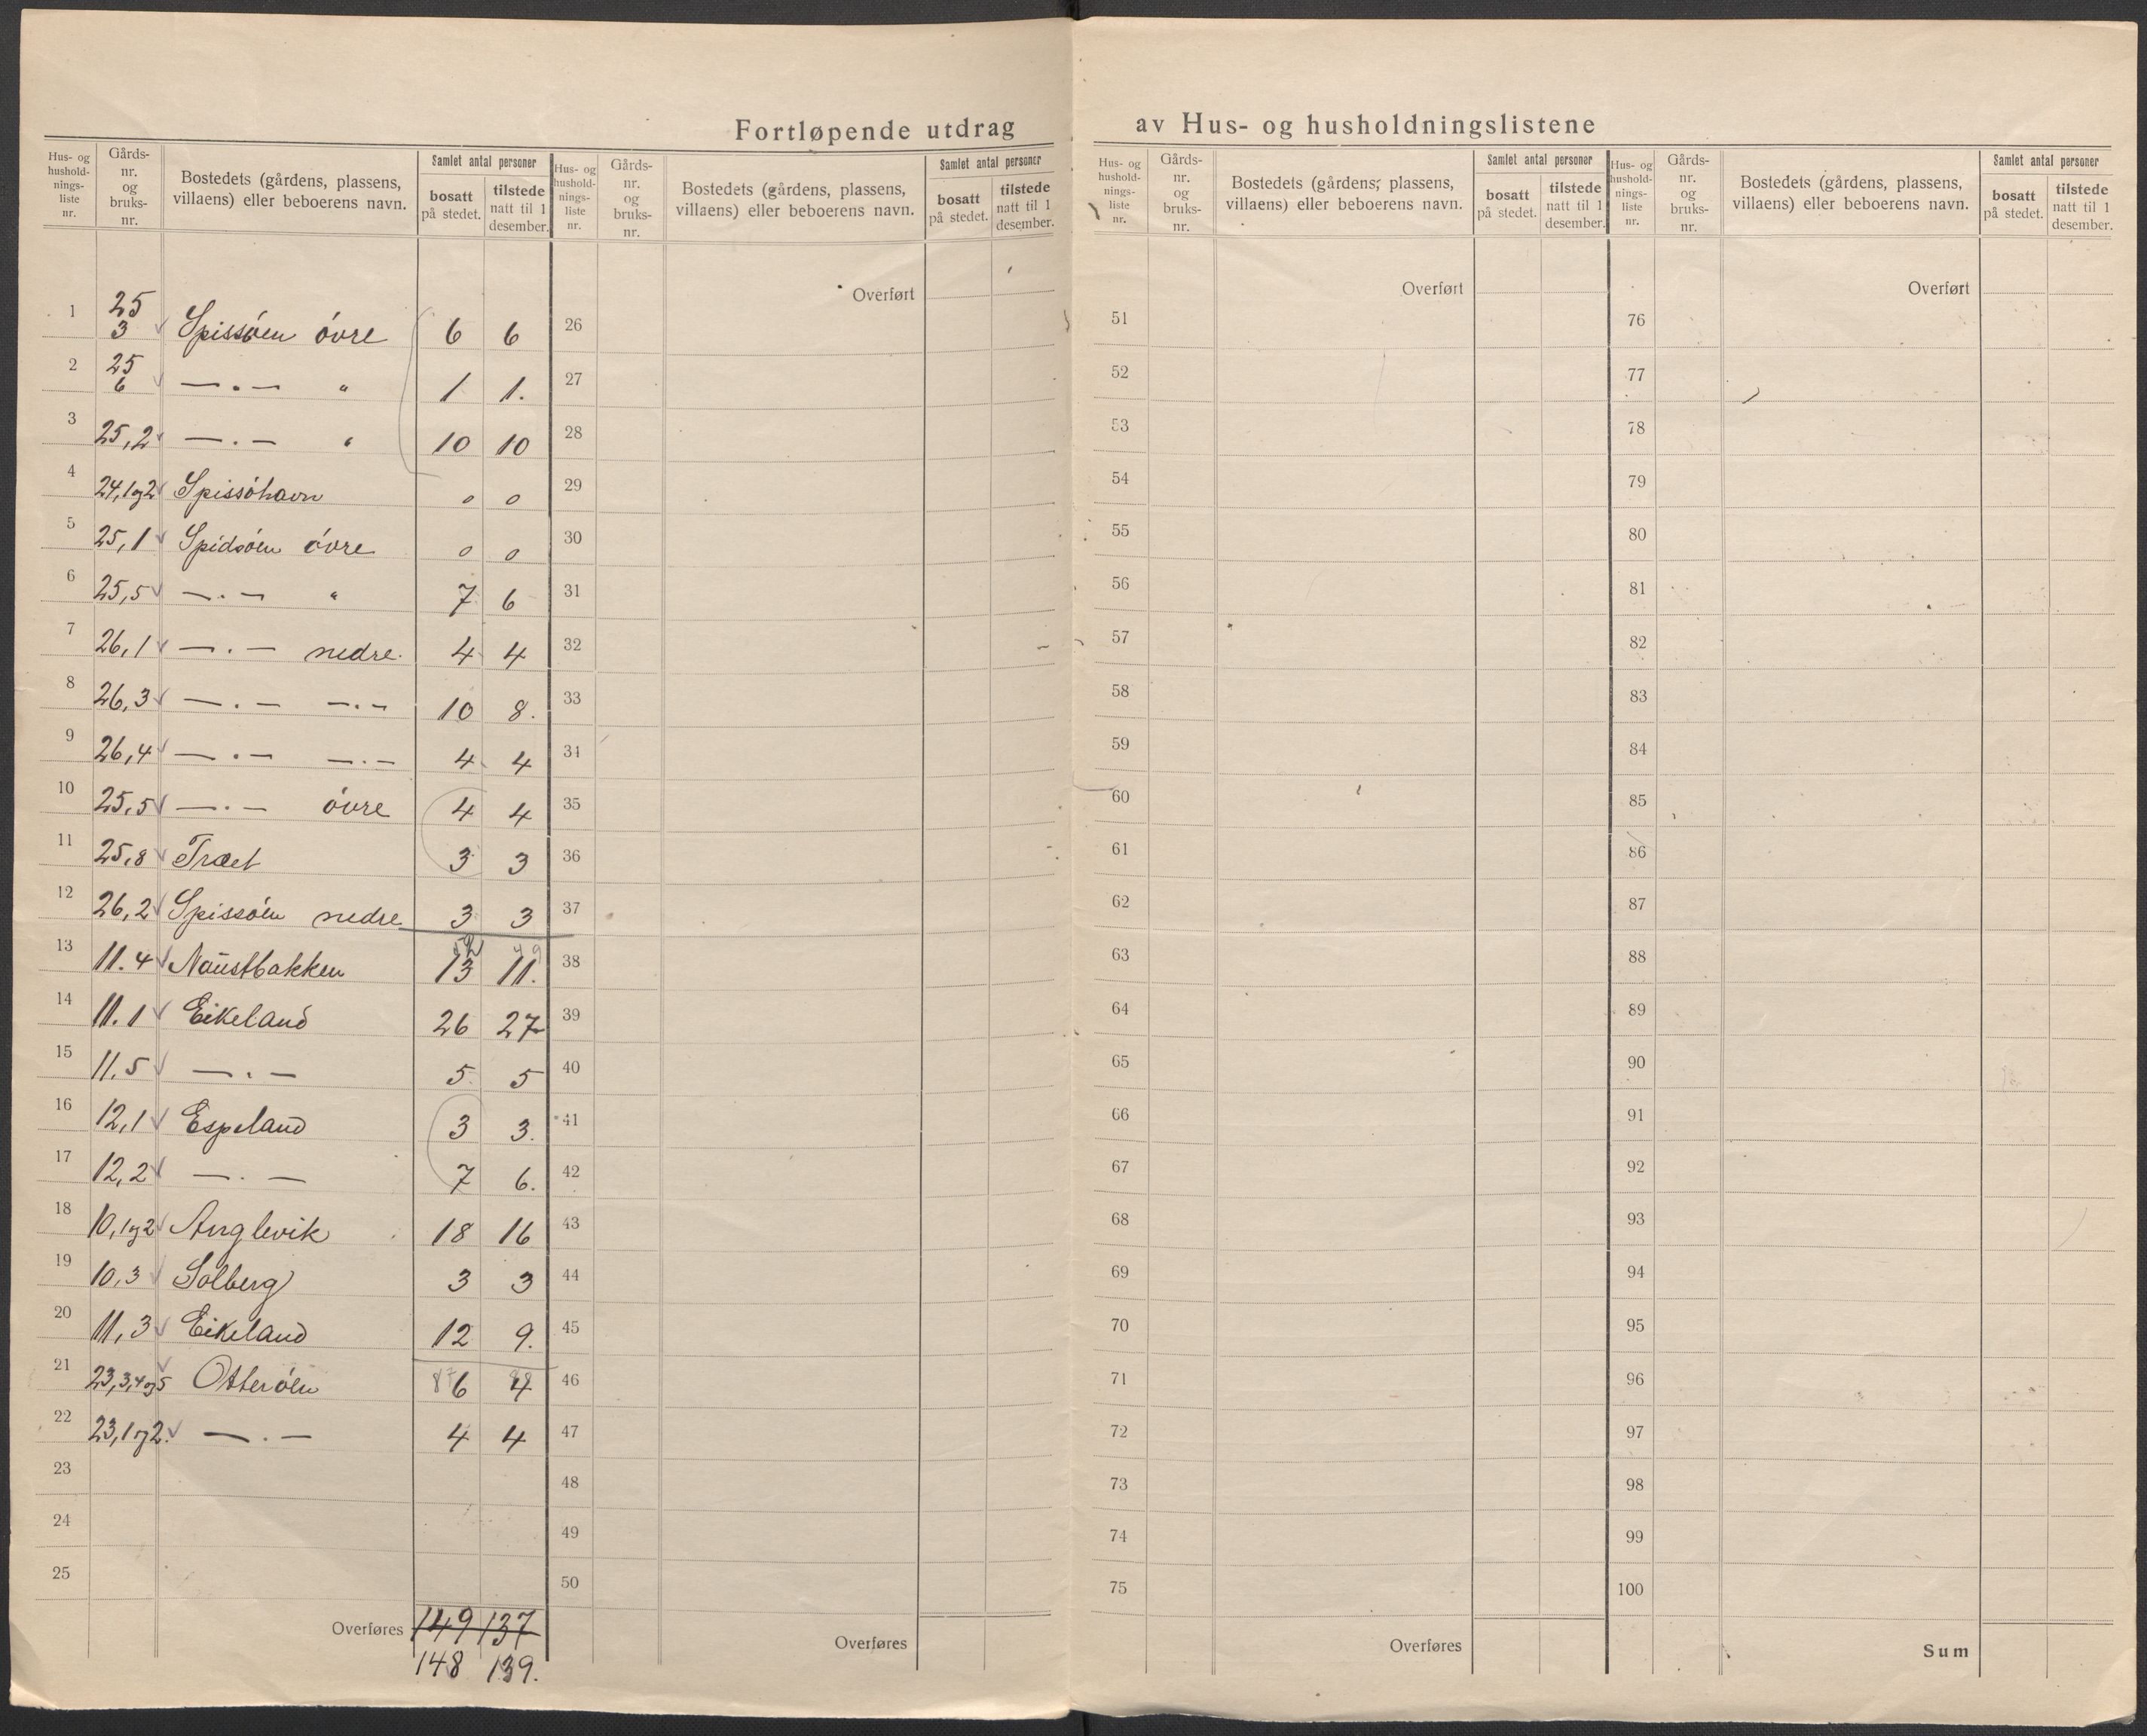 Fortløpende utdrag av Hus- og husholdningslistene
Hus- og hushold-nings-liste nr. Gårds-nr. og bruks-nr. Bostedets (gårdens, plassens, villaens) eller beboerens navn. Samlet antal personer bosatt på stedet. tilstede natt til 1 desember.
1 25 3 Spissöen övre 6 6
2 25 6 — . — " 1 1.
3 25,2 — . — " 10 10
4 24,1og2 Spissöhavn 0 0
5 25,1 Spidsöen övre 0 0
6 25,5 — . — " 7 6
7 26,1 — . — nedre. 4 4
8 26,3 — . — — . — 10 8.
9 26,4 — . — — . — 4 4
10 25,5 — . — övre 4 4
11 25,8 Træet 3 3
12 26,2 Spissöen nedre 3 3
52 49
13 11.4 Naustbakken 13 11.
14 11.1 Eikeland 26 27
15 11.5 — . — 5 5
16 12,1 Espeland 3 3.
17 12,2 — . — 7 6.
18 10,1og2 Anglevik 18 16
19 10,3 Solberg 3 3
20 11,3 Eikeland 12 9.
21 23,3,4og5 Otteröen 6 4
22 23,1og2. — . — 4 4
23
24
25
Overføres 149 137
148 139.
Hus- og hushold-nings-liste nr. Gårds-nr. og bruks-nr. Bostedets (gårdens, plassens, villaens) eller beboerens navn. Samlet antal personer bosatt på stedet. tilstede natt til 1 desember.
Overført
26
27
28
29
30
31
32
33
34
35
36
37
38
39
40
41
42
43
44
45
46
47
48
49
50
Overføres
Hus- og hushold-nings-liste nr. Gårds-nr. og bruks-nr. Bostedets (gårdens, plassens, villaens) eller beboerens navn. Samlet antal personer bosatt på stedet. tilstede natt til 1 desember.
Overført
51
52
53
54
55
56
57
58
59
60
61
62
63
64
65
66
67
68
69
70
71
72
73
74
75
Overføres
Hus- og hushold-nings-liste nr. Gårds-nr. og bruks-nr. Bostedets (gårdens, plassens, villaens) eller beboerens navn. Samlet antal personer bosatt på stedet. tilstede natt til 1 desember.
Overført
76
77
78
79
80
81
82
83
84
85
86
87
88
89
90
91
92
93
94
95
96
97
98
99
100
Sum